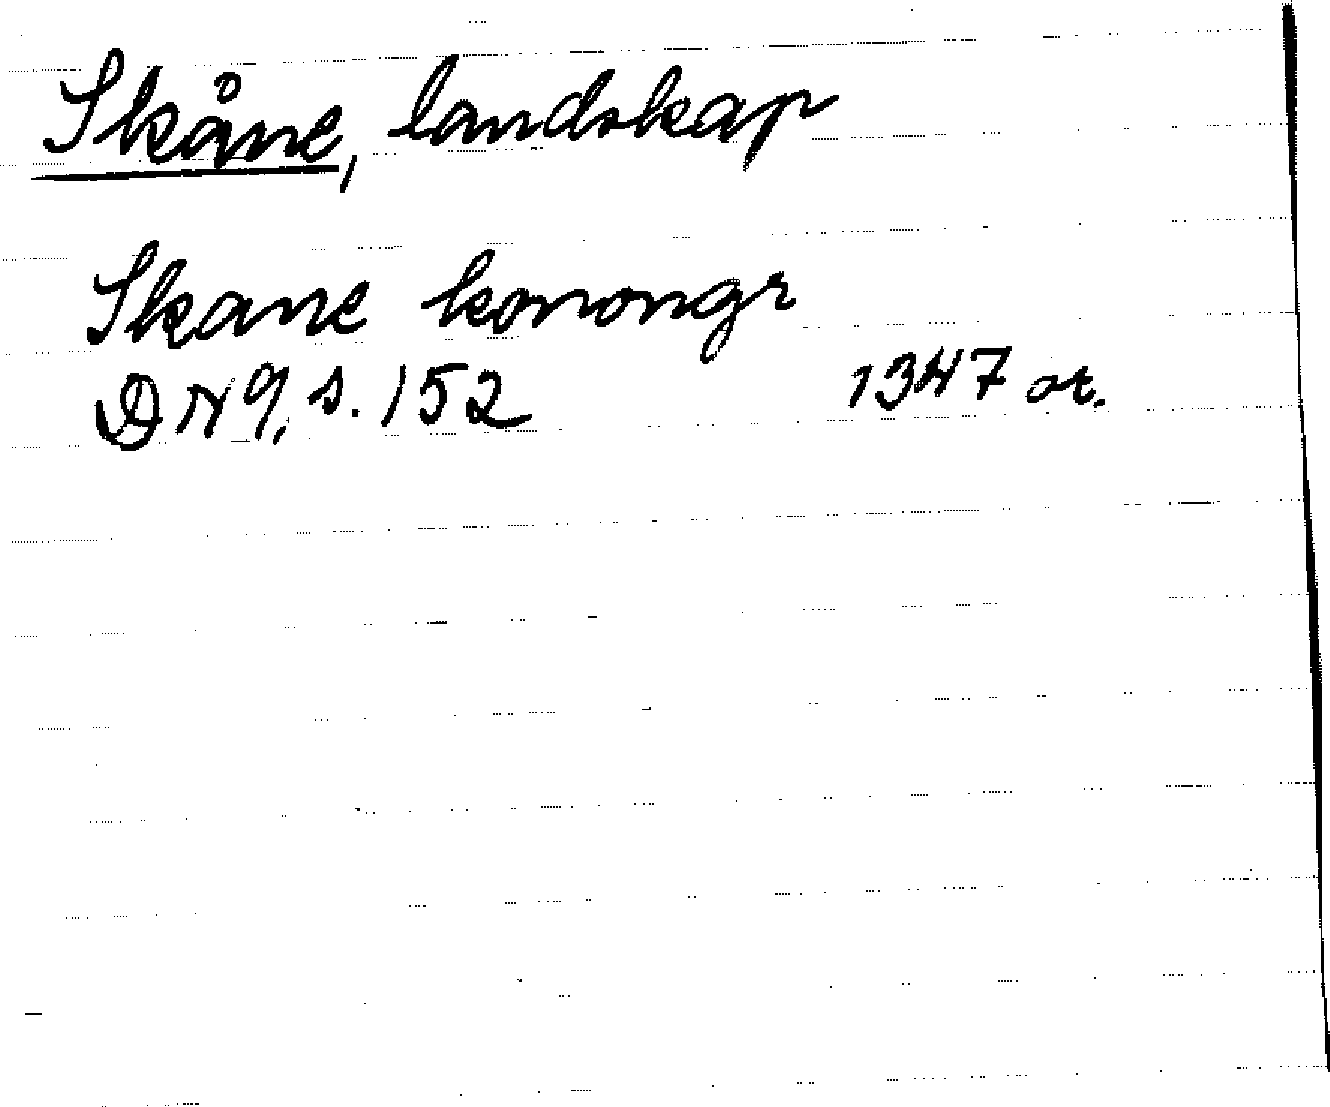 Skåne, landskap
Skane konongr
DN 9, s. 152 1347 or.